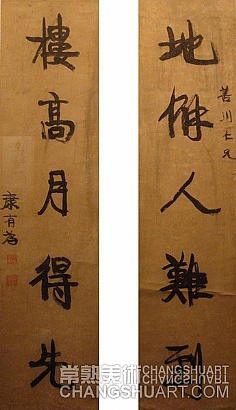 地僻人難到
善川仁兄
樓高月得先
康有為
常熟美術 CHANGSHUART
CHANGSHUART.COM